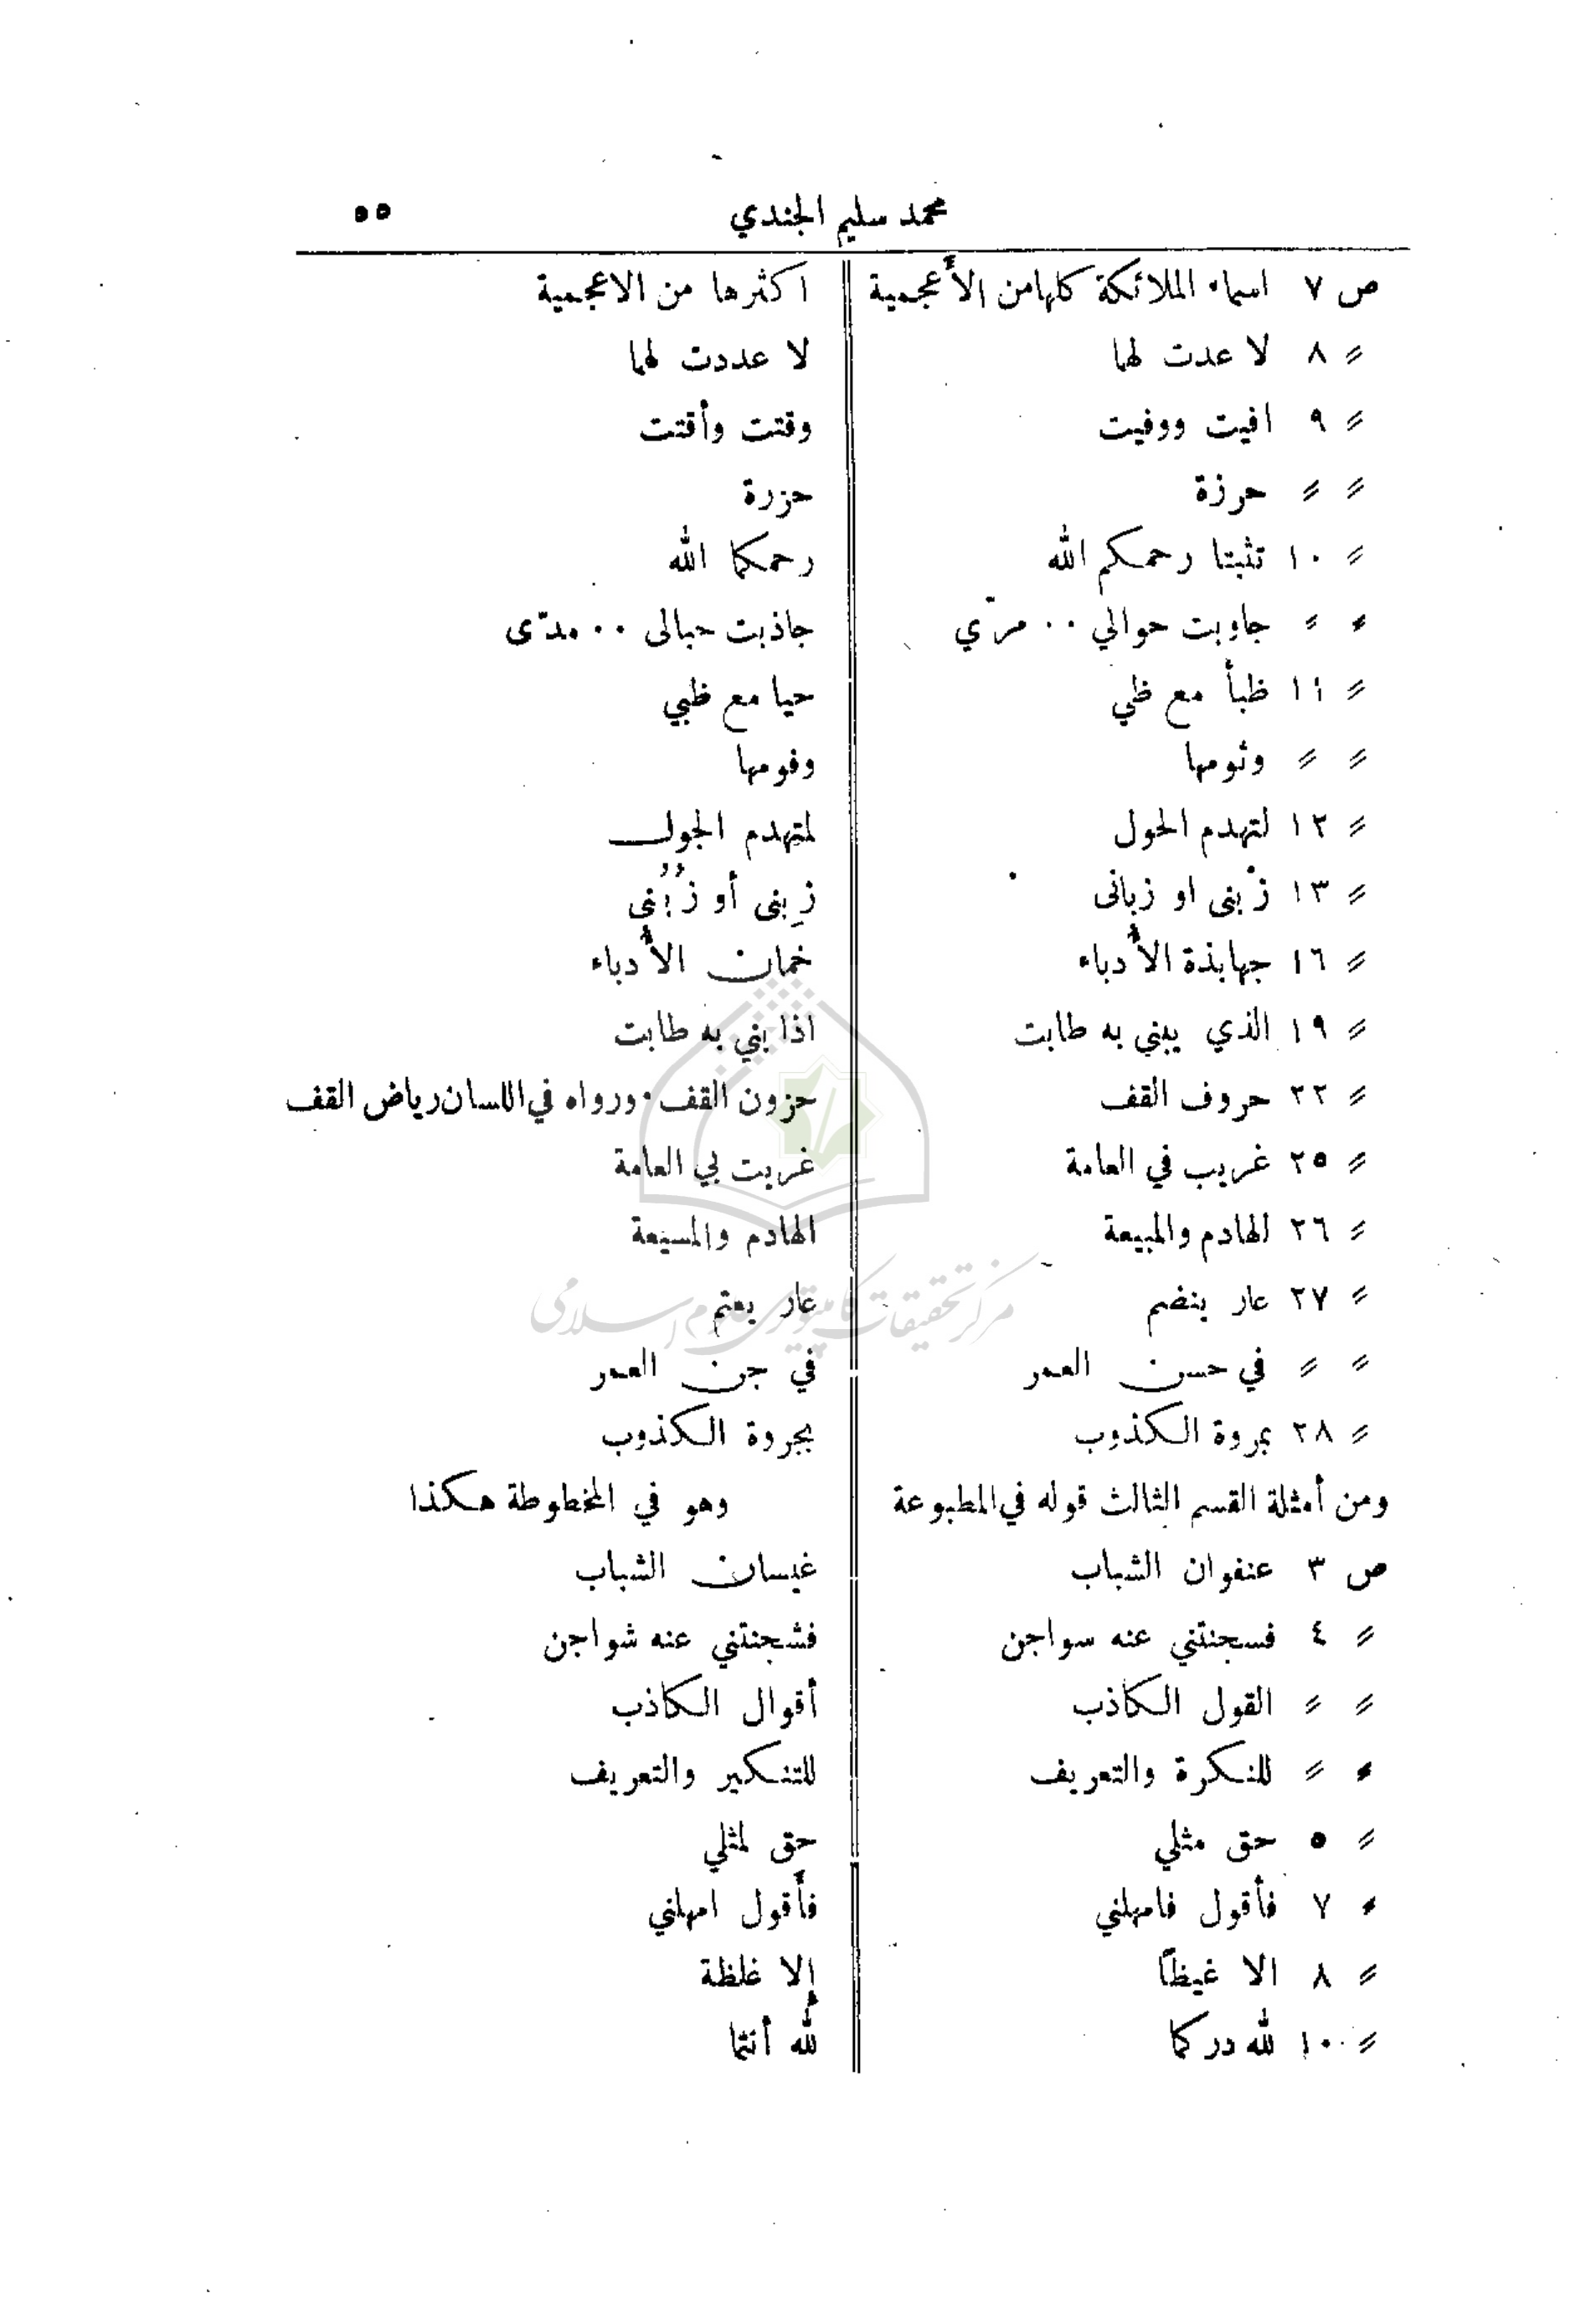 محمد سليم الجندي ٥٥
ص ٧ اسماء الملائكة كلها من الأعجمية اكثرها من الاعجمية
〃 ٨ لا عدت لها لا عددت لها
〃 ٩ افيت ووفيت وقتت وأقتت
〃 〃 حرزة حزرة
〃 ١٠ تثبتا رحمكم الله رحمكما الله
〃 〃 جاوبت حوالي ٠٠ مرّي جاذبت حبالى ٠٠ مدّى
〃 ١١ ظبأ مع ظي حيا مع ظبي
〃 〃 وثومها وفومها
〃 ١٢ لتهدم الحول لمتهدم الجول
〃 ١٣ زبنى او زبانى زبنى أو زبنى
〃 ١٦ جهابذة الأدباء خمان الأدباء
〃 ١٩ الذي يبني به طابت اذا بني به طابت
〃 ٢٢ حروف القف حزون القف ٠ ورواه في اللسان رياض القف
〃 ٢٥ غريب في العامة غريت بي العامة
〃 ٢٦ الهادم والمبيعة الهادم والمسيعة
〃 ٢٧ عار ينضم عار يعتم
〃 〃 في حسن العمر في جن العمر
〃 ٢٨ بمروة الكذوب بجروة الكذوب
ومن أمثلة القسم الثالث قوله في المطبوعة وهو في المخطوطة هكذا
ص ٣ عنفوان الشباب غيسان الشباب
〃 ٤ فسجنتني عنه سواجن فشجنتني عنه شواجن
〃 〃 القول الكاذب أقوال الكاذب
〃 〃 للنكرة والتعريف للتنكير والتعريف
〃 ٥ حق مثلي حق لمثلي
〃 ٧ فأقول فامهلني فأقول امهلني
〃 ٨ الا غيظاً إلا غلظة
〃 ١٠ لله دركما لله أنتما
مركز تحقيقات كامپيوترى علوم اسلامى